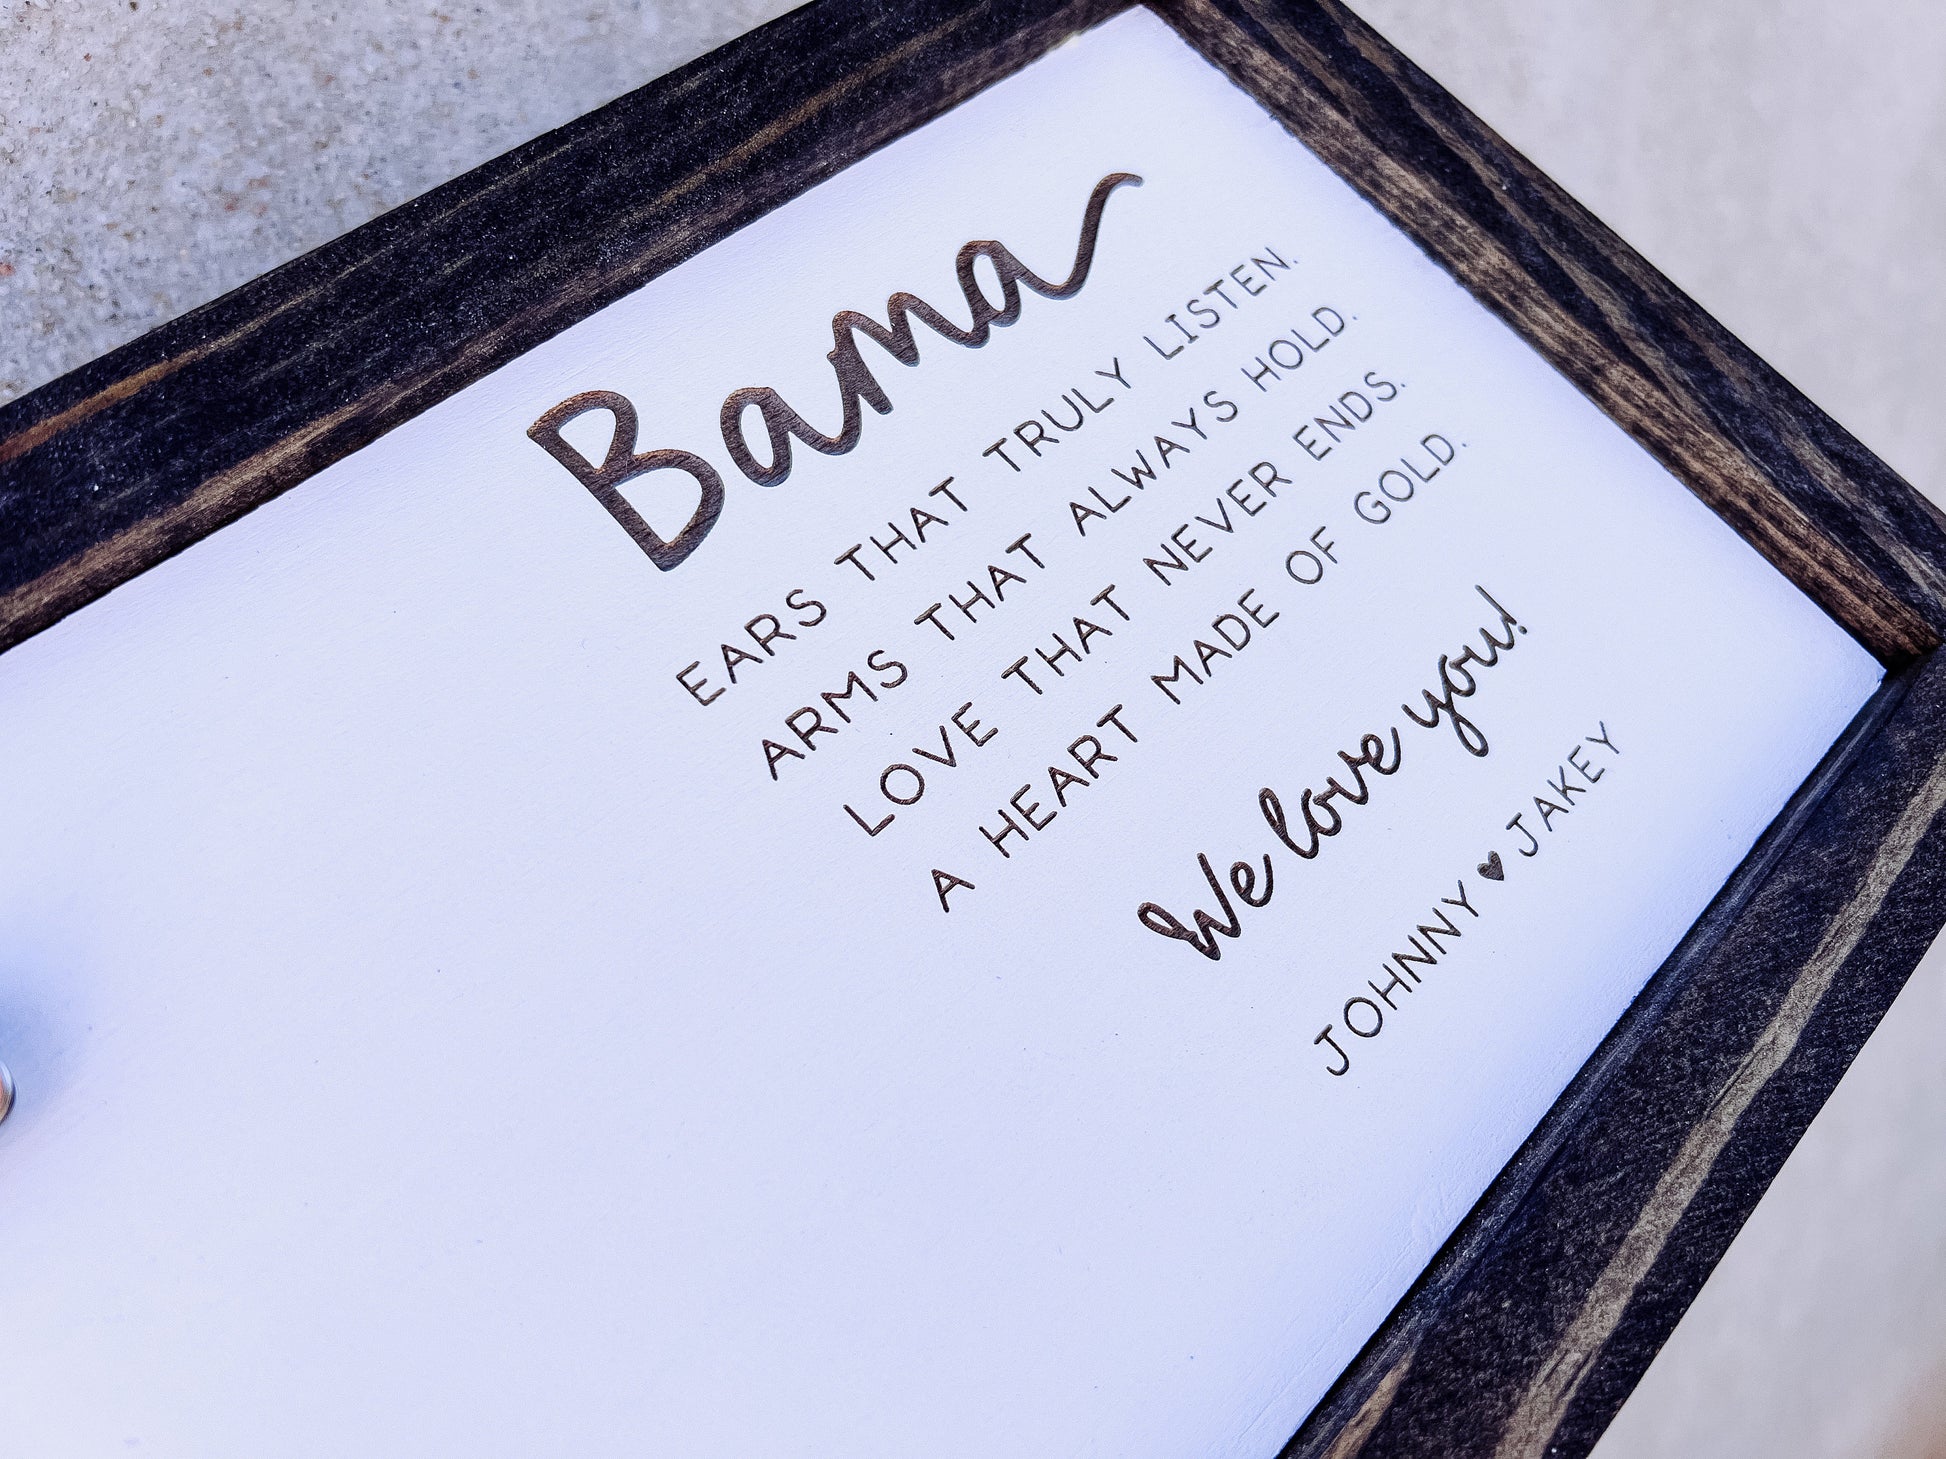 Bama
EARS THAT TRULY LISTEN.
ARMS THAT ALWAYS HOLD.
LOVE THAT NEVER ENDS.
A HEART MADE OF GOLD.
We love you!
JOHNNY ♥ JAKEY